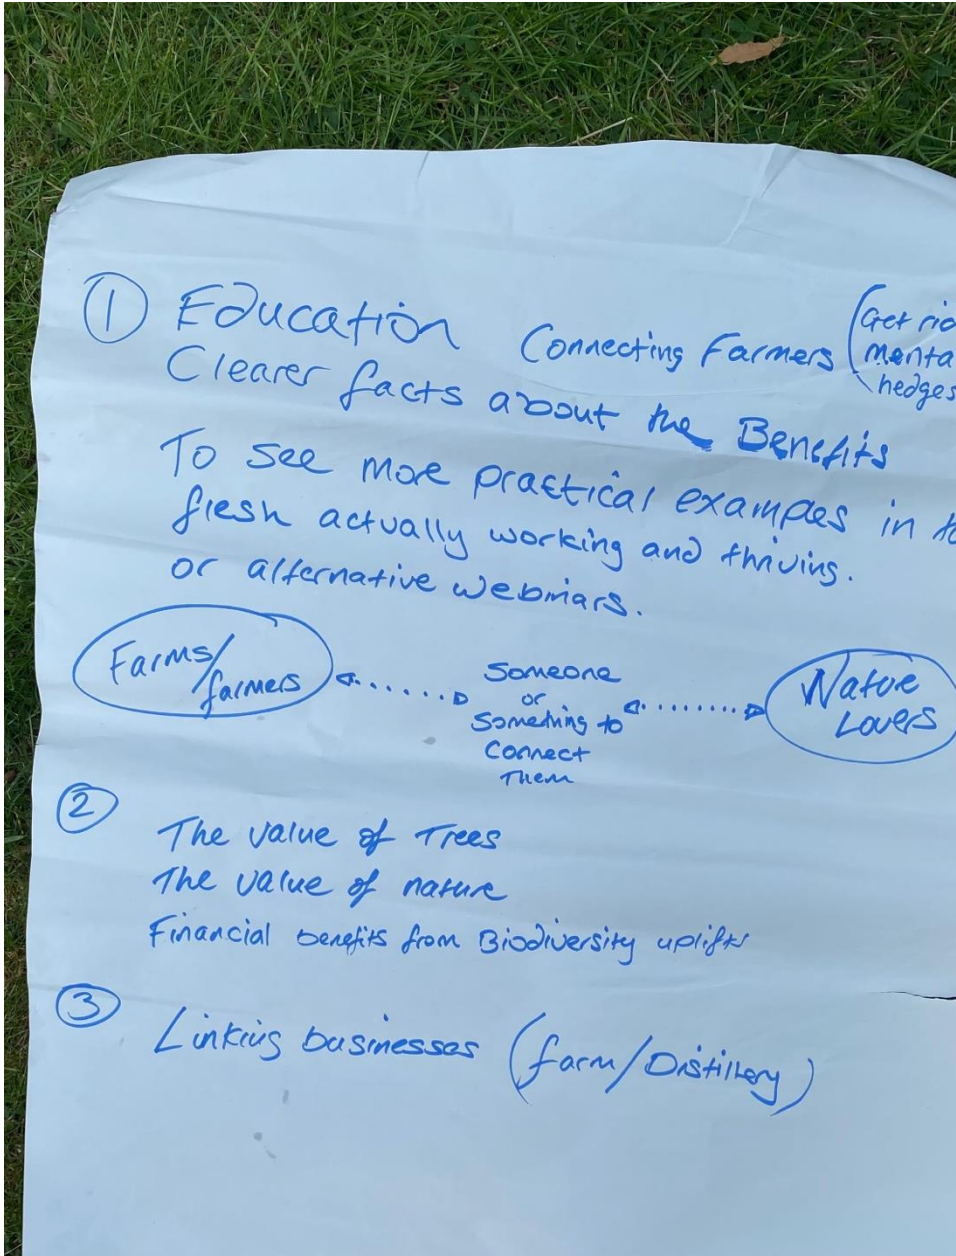 ① Education Connecting Farmers (Get
Clearer facts about the Benefits
To see more practical examples in
flesh actually working and thriving.
or alternative webinars.
hedges
Farms/
farmers
Someone
or
Something to
Connect
Them
Nature
Lovers
②
The value of Trees
The value of nature
Financial benefits from Biodiversity uplifts
③
Linking businesses (farm/Distillery)